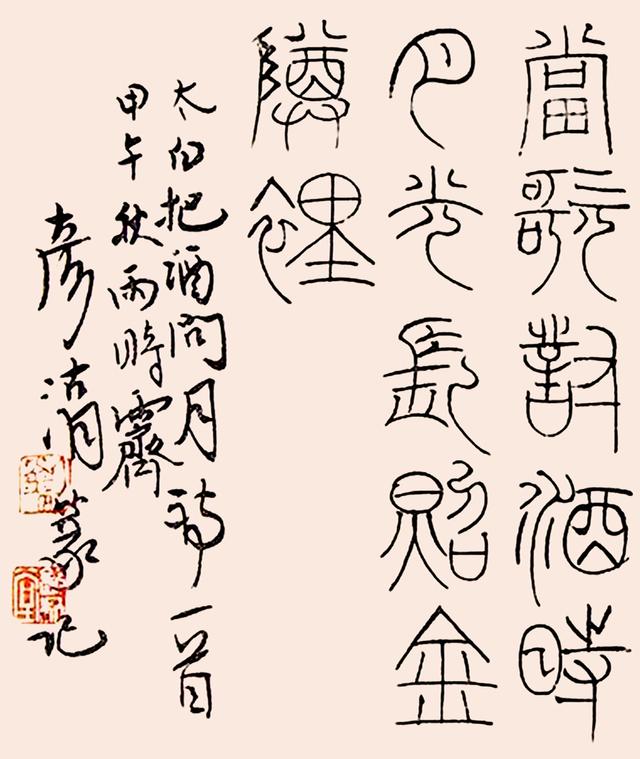 當歌對酒時
月光長照金
樽裡
太白把酒問月詩一首
甲午秋雨時霽
彥清篆記